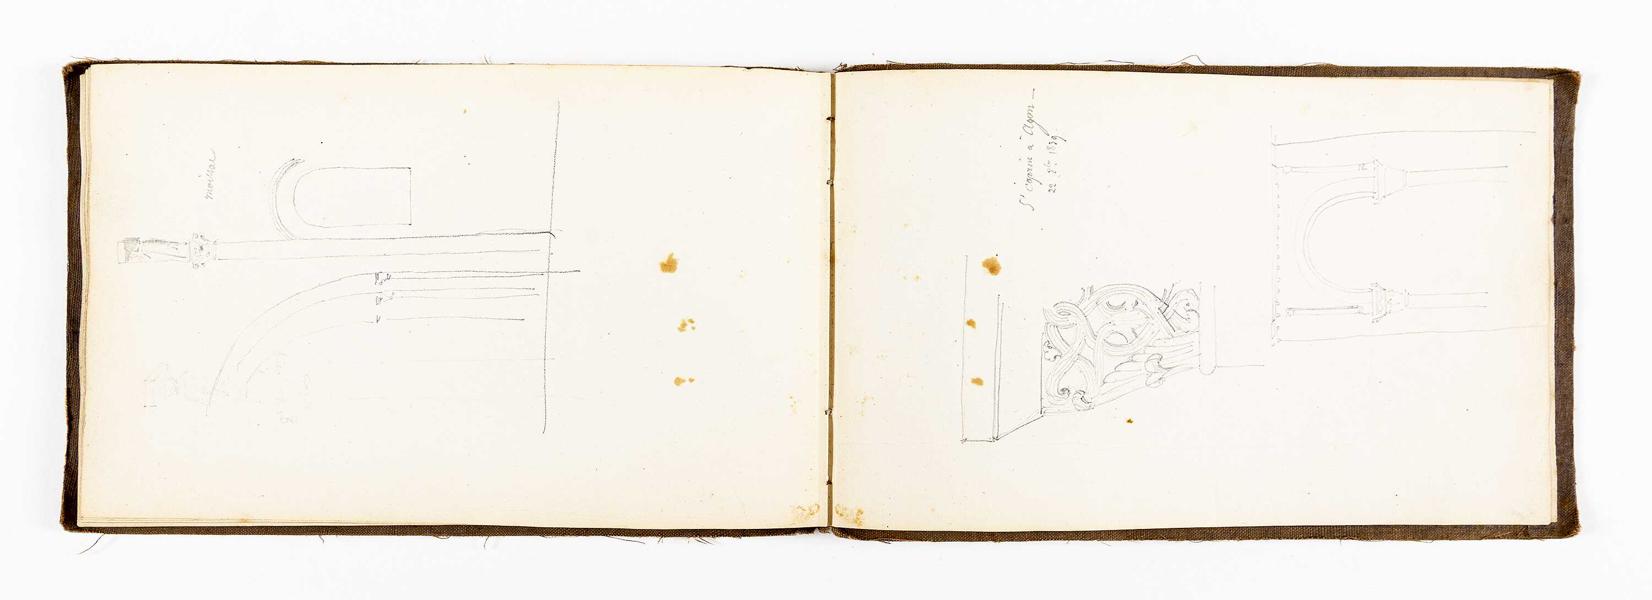 moissac
St Caprais à Agen —
22 7bre 1839